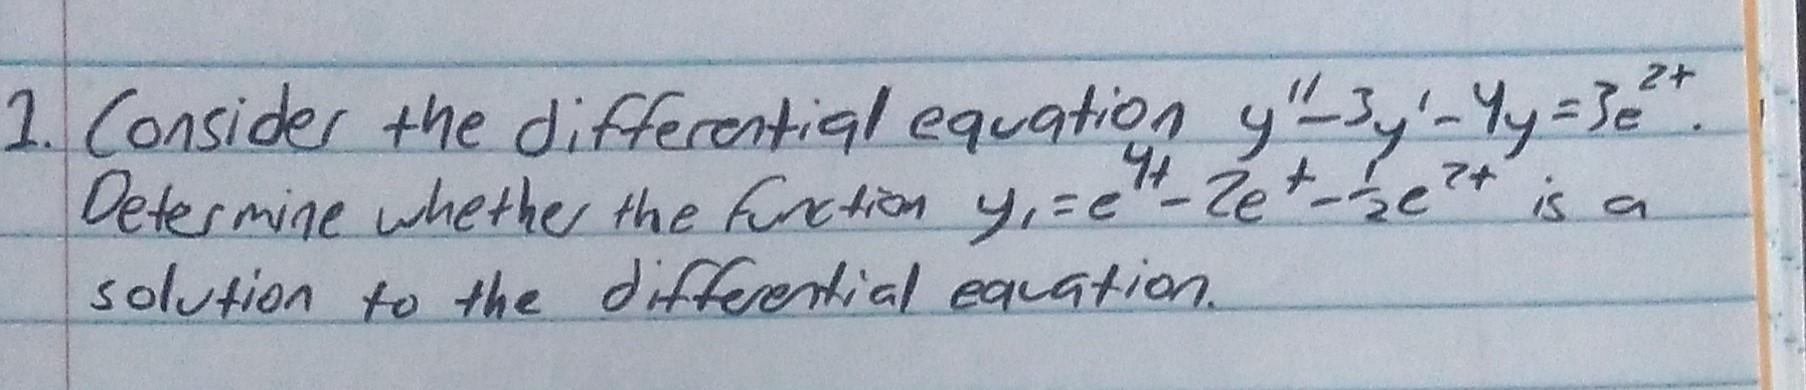 1. Consider the differential equation y''-3y'-4y=3e^2t.
Determine whether the function y₁=e^4t-2e^t-½e^2t is a
solution to the differential equation.